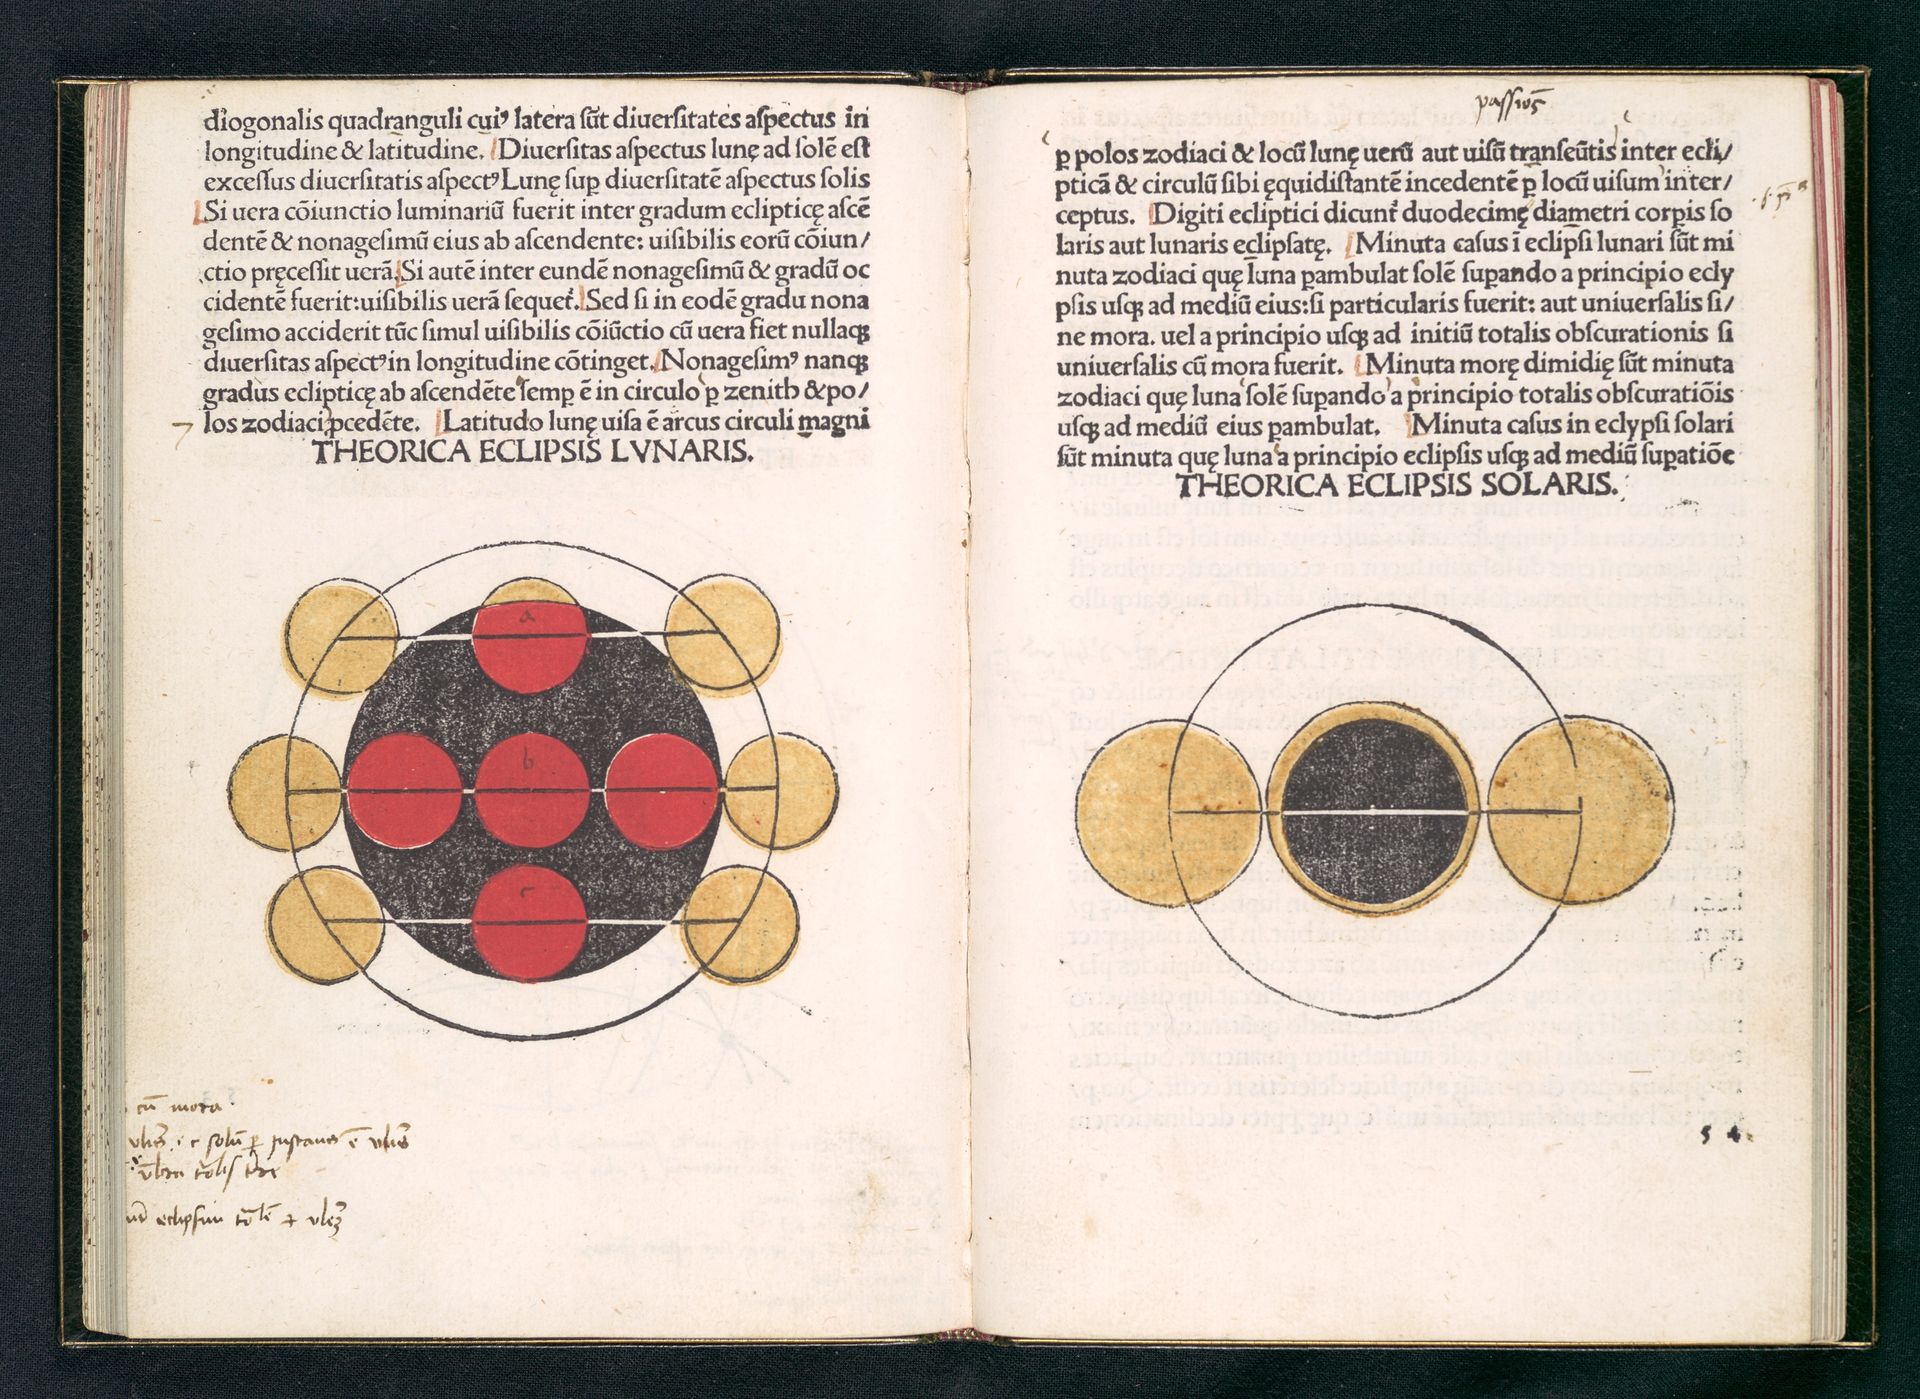 diogonalis quadranguli cuiꝰ latera sũt diuersitates aspectus in
longitudine & latitudine. Diuersitas aspectus lunę ad solẽ est
excessus diuersitatis aspectꝰ Lunę sup diuersitatẽ aspectus solis
Si uera cõiunctio luminariũ fuerit inter gradum eclipticę ascẽ
dentẽ & nonagesimũ eius ab ascendente: uisibilis eorũ cõiun/
ctio pręcessit uerã. Si autẽ inter eundẽ nonagesimũ & gradũ oc
cidentẽ fuerit: uisibilis uerã sequet̃. Sed si in eodẽ gradu nona
gesimo acciderit tũc simul uisibilis cõiũctio cũ uera fiet nullaqꝫ
diuersitas aspectꝰ in longitudine cõtinget. Nonagesimꝰ nanqꝫ
gradus eclipticę ab ascendẽte semꝑ ẽ in circulo ꝑ zenith & po/
los zodiaci ꝓcedẽte. Latitudo lunę uisa ẽ arcus circuli magni
THEORICA ECLIPSIS LVNARIS.
a
b
c
cũ mora
passiõs
ꝑ polos zodiaci & locũ lunę uerũ aut uisũ transeũtis inter ecli/
pticã & circulũ sibi ęquidistantẽ incedentẽ ꝑ locũ uisum inter/
ceptus. Digiti ecliptici dicunt̃ duodecimę diametri corꝑis so
laris aut lunaris eclipsatę. Minuta casus ĩ eclipsi lunari sũt mi
nuta zodiaci quę luna ꝑambulat solẽ suꝑando a principio ecly
psis usqꝫ ad mediũ eius: si particularis fuerit: aut uniuersalis si/
ne mora. uel a principio usqꝫ ad initiũ totalis obscurationis si
uniuersalis cũ mora fuerit. Minuta morę dimidię sũt minuta
zodiaci quę luna solẽ suꝑando a principio totalis obscuratiõis
usqꝫ ad mediũ eius ꝑambulat. Minuta casus in eclypsi solari
sũt minuta quę luna a principio eclipsis usqꝫ ad mediũ suꝑatiõe
THEORICA ECLIPSIS SOLARIS.